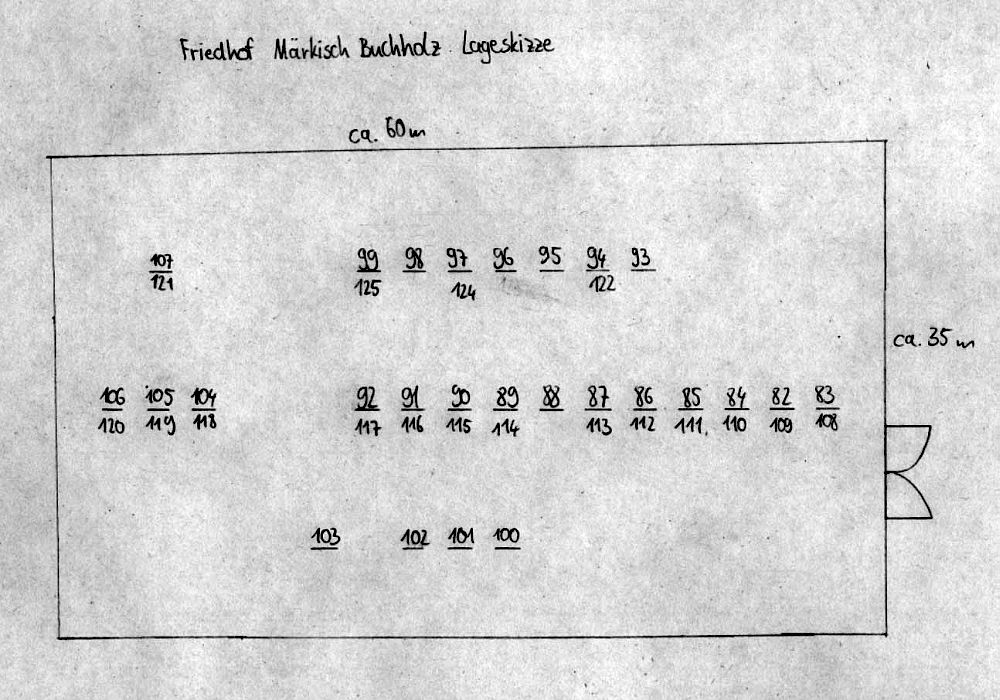 Friedhof Märkisch Buchholz Lageskizze
ca. 60 m
107 99 98 97 96 95 94 93
121 125 124 122
ca. 35 m
106 105 104 92 91 90 89 88 87 86 85 84 82 83
120 119 118 117 116 115 114 113 112 111. 110 109 108
103 102 101 100